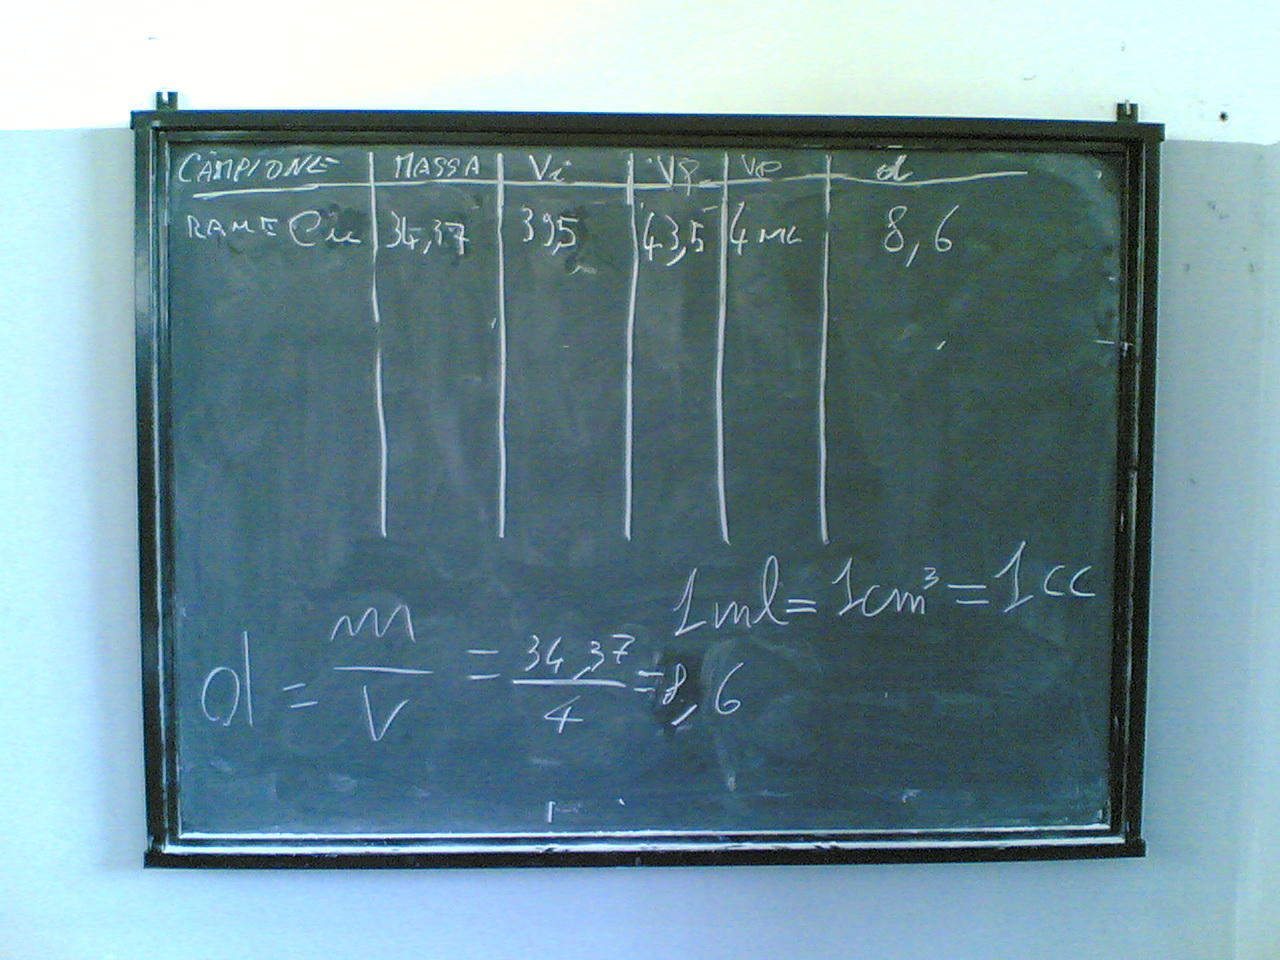 CAMPIONE MASSA Vi Vf Vo d
RAME Cu 34,37 39,5 43,5 4 ML 8,6
1ml = 1cm³ = 1cc
d = m/V = 34,37/4 = 8,6